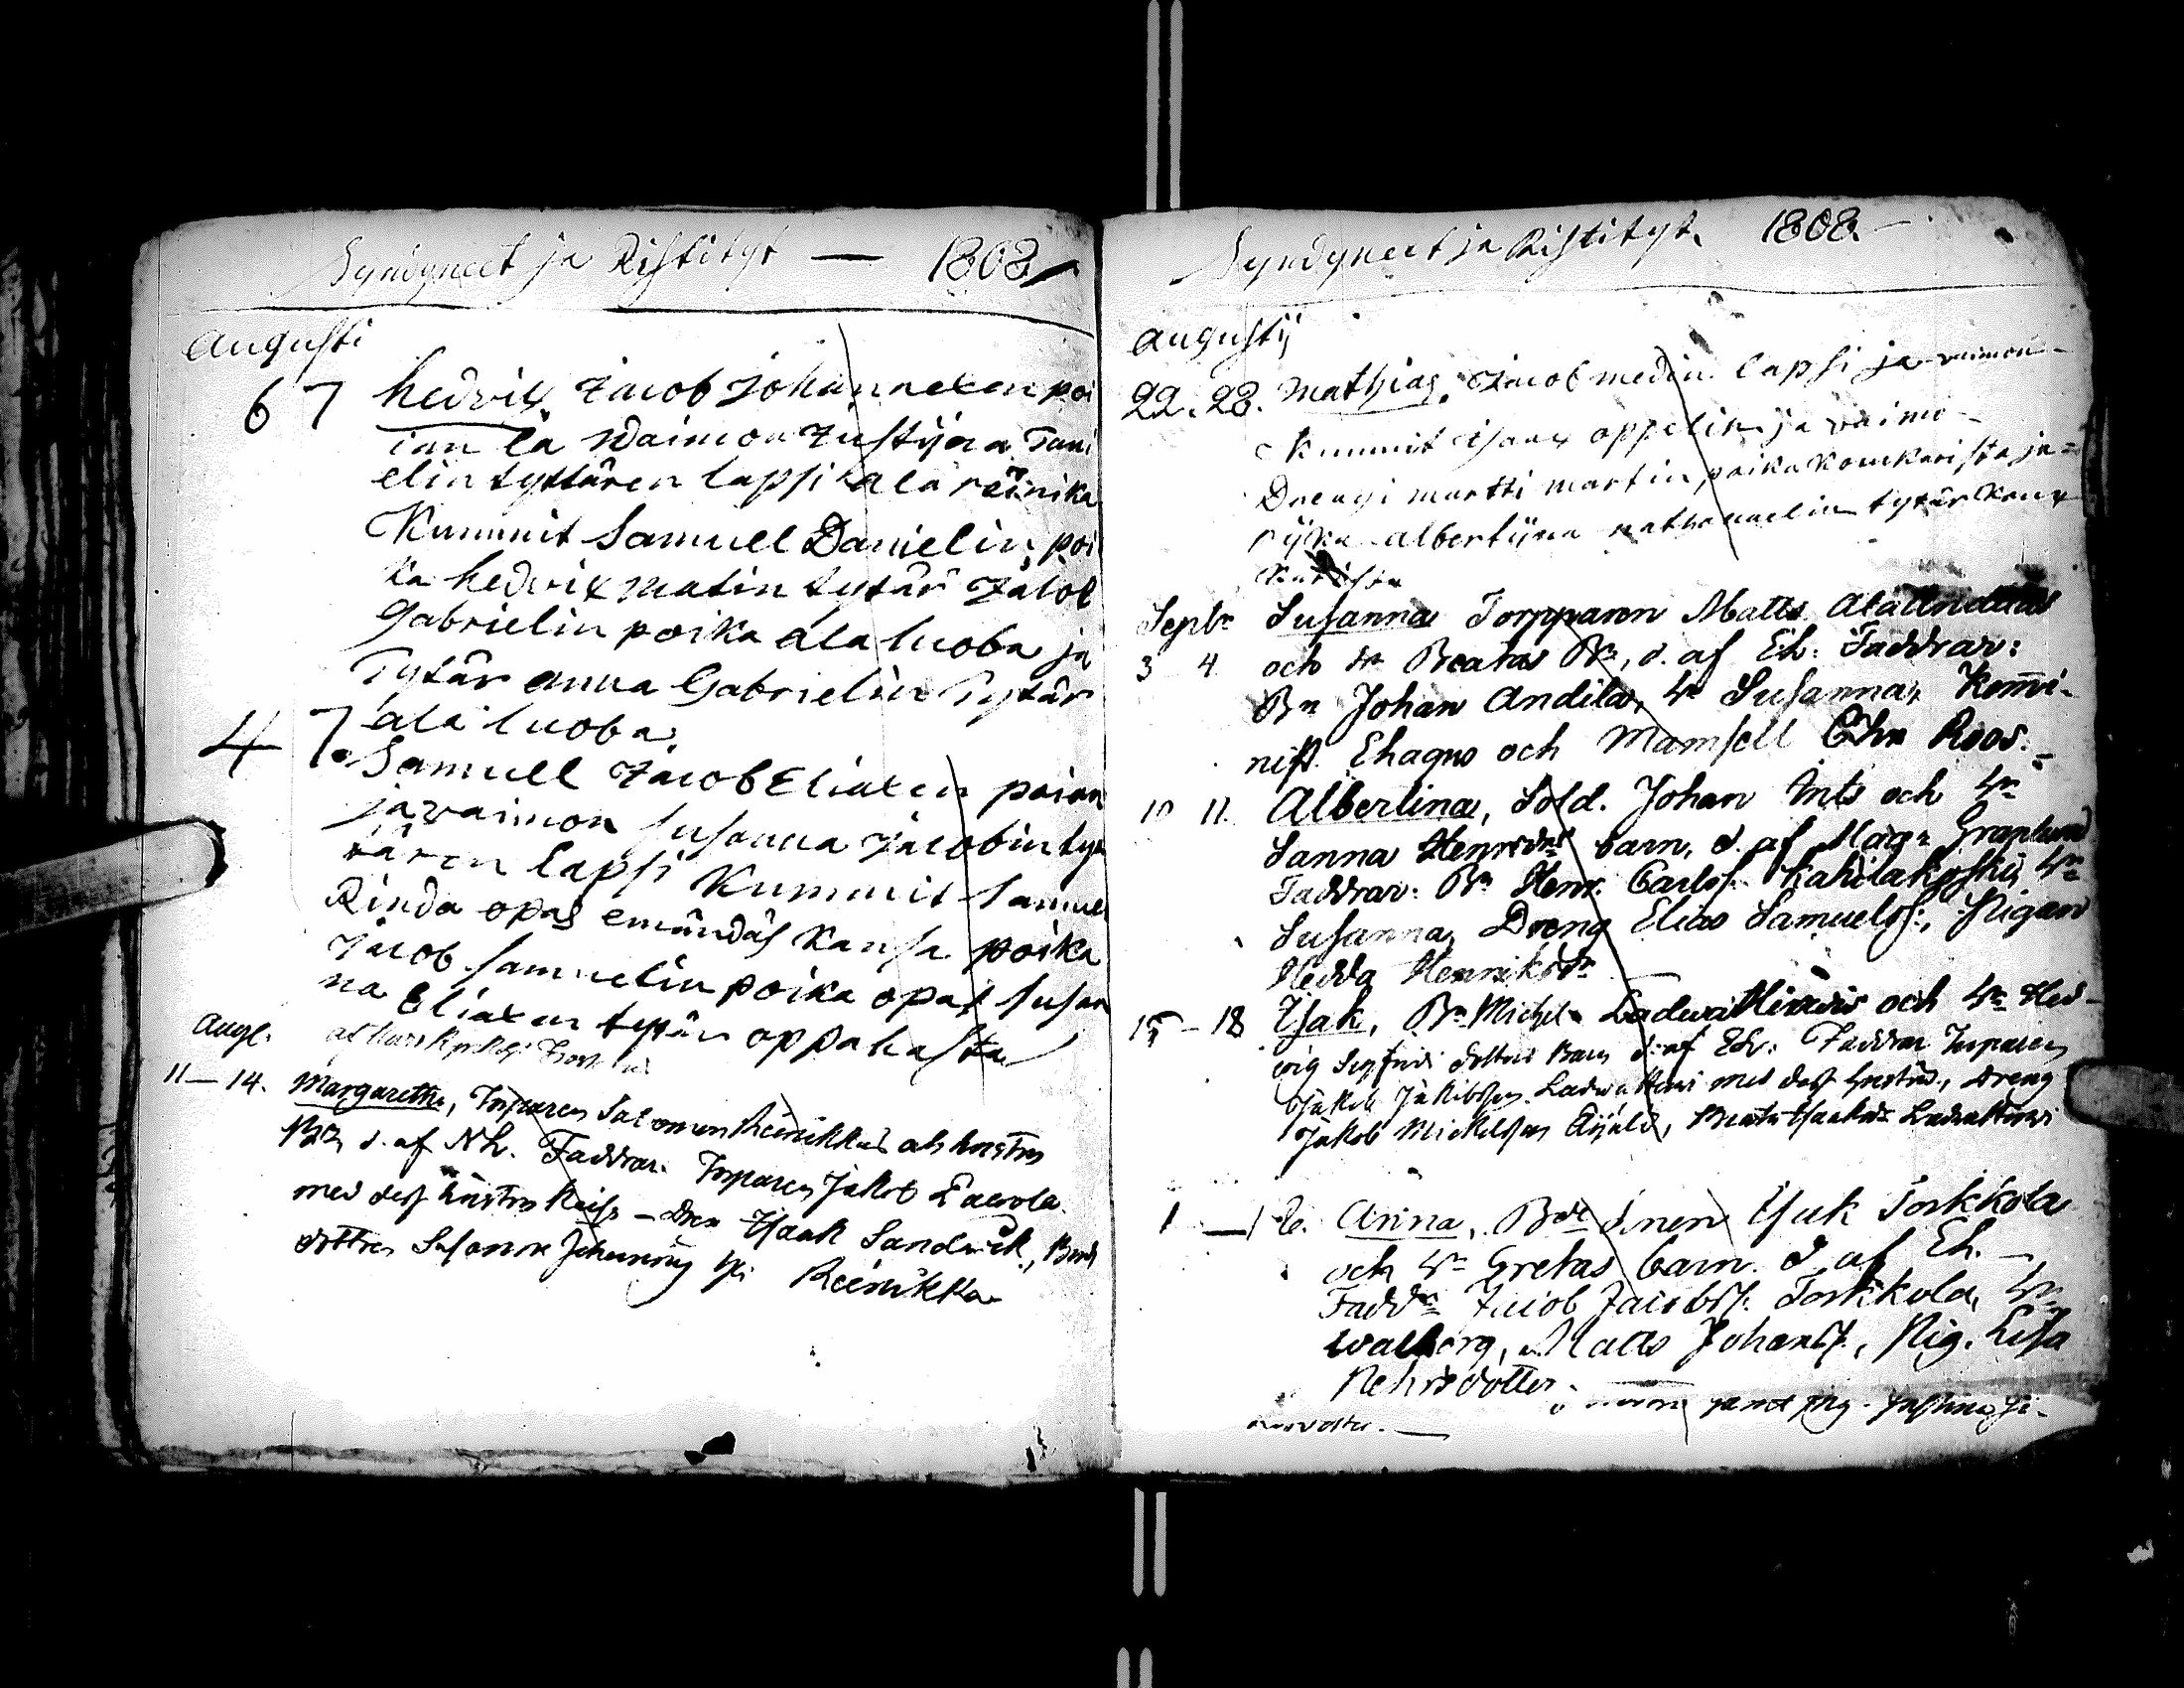 Syndyneet ja Ristityt — 1808
Augusti
6 7 hedvix Jacob Johannexen poi
ian ja Waimon Justijna Tani
elin tyttären lapsi ala reinika
Kummit Samuel Danielin poi
ka hedvix matin tytär Jacob
Gabrielin poika ala luoba ja
Tytär anna Gabrielin Tytär
ala luoba.
4 7. Samuell Jacob Eliaxen poian
ja vaimon susanna Jacobin tyt
tären lapsi Kummit Samuel
Rinda opas emändäs kansa poika
Jacob samuelin poika opas susan
na Eliaxen tytär oppahasta
Augt.
11—14. Margaretha, Torparen Salomon Reinikkas och hustrus
d. af N L. Faddrar. Torparen Jakob Laurola
med dess hustru — Dr. Isaak Sandvik, Bond
dottren Susanna Reinikka
Syndyneet ja Ristityt. 1808. —
Augustij
22. 23. Mathias. Jacob medin lapsi ja vaimon
Kummit isaax oppelin ja vaimo
Drengi martti martin poika kouckarista ja
pijka albertijna nathanaelin tytär kouc
karista
Septr Susanna Torpparen Matts
3 4. och hu Beatas Bn, d. af Eh: Faddrar:
Bn Johan Andila, hu Susanna,
Ehagus och Mamsell Chr Roos.
10 11. Albertina, Sold. Johan Ints och hu
Sanna Henrsdrs barn, d. af Mag. Granlund
Faddrar: Bn Henr. Carlss. Kahilakoski, hu
Susanna, Dreng Elias Samuelss:, Pigan
Hedda Henriksdr
15—18 Isak, Bn Michel Ladvahirvis och hu Hed-
vig Sigfrids dotters Barn d. af Eh: Faddrar Torparen
Jakob Jakobsson Ladvahirvi med dess hustru, Dreng
Jakob Mickelsson Äijälä, Beata Isaksdr Ladvahirvi
Anna, Isak Torkkola
och hu Gretas barn. d. af Eh. —
Faddr Jacob Jacobss. Torkkola, hu
Walborg, Matts Johanss., Pig. Lisa
Pehrsdotter.
samt Pig. Justina